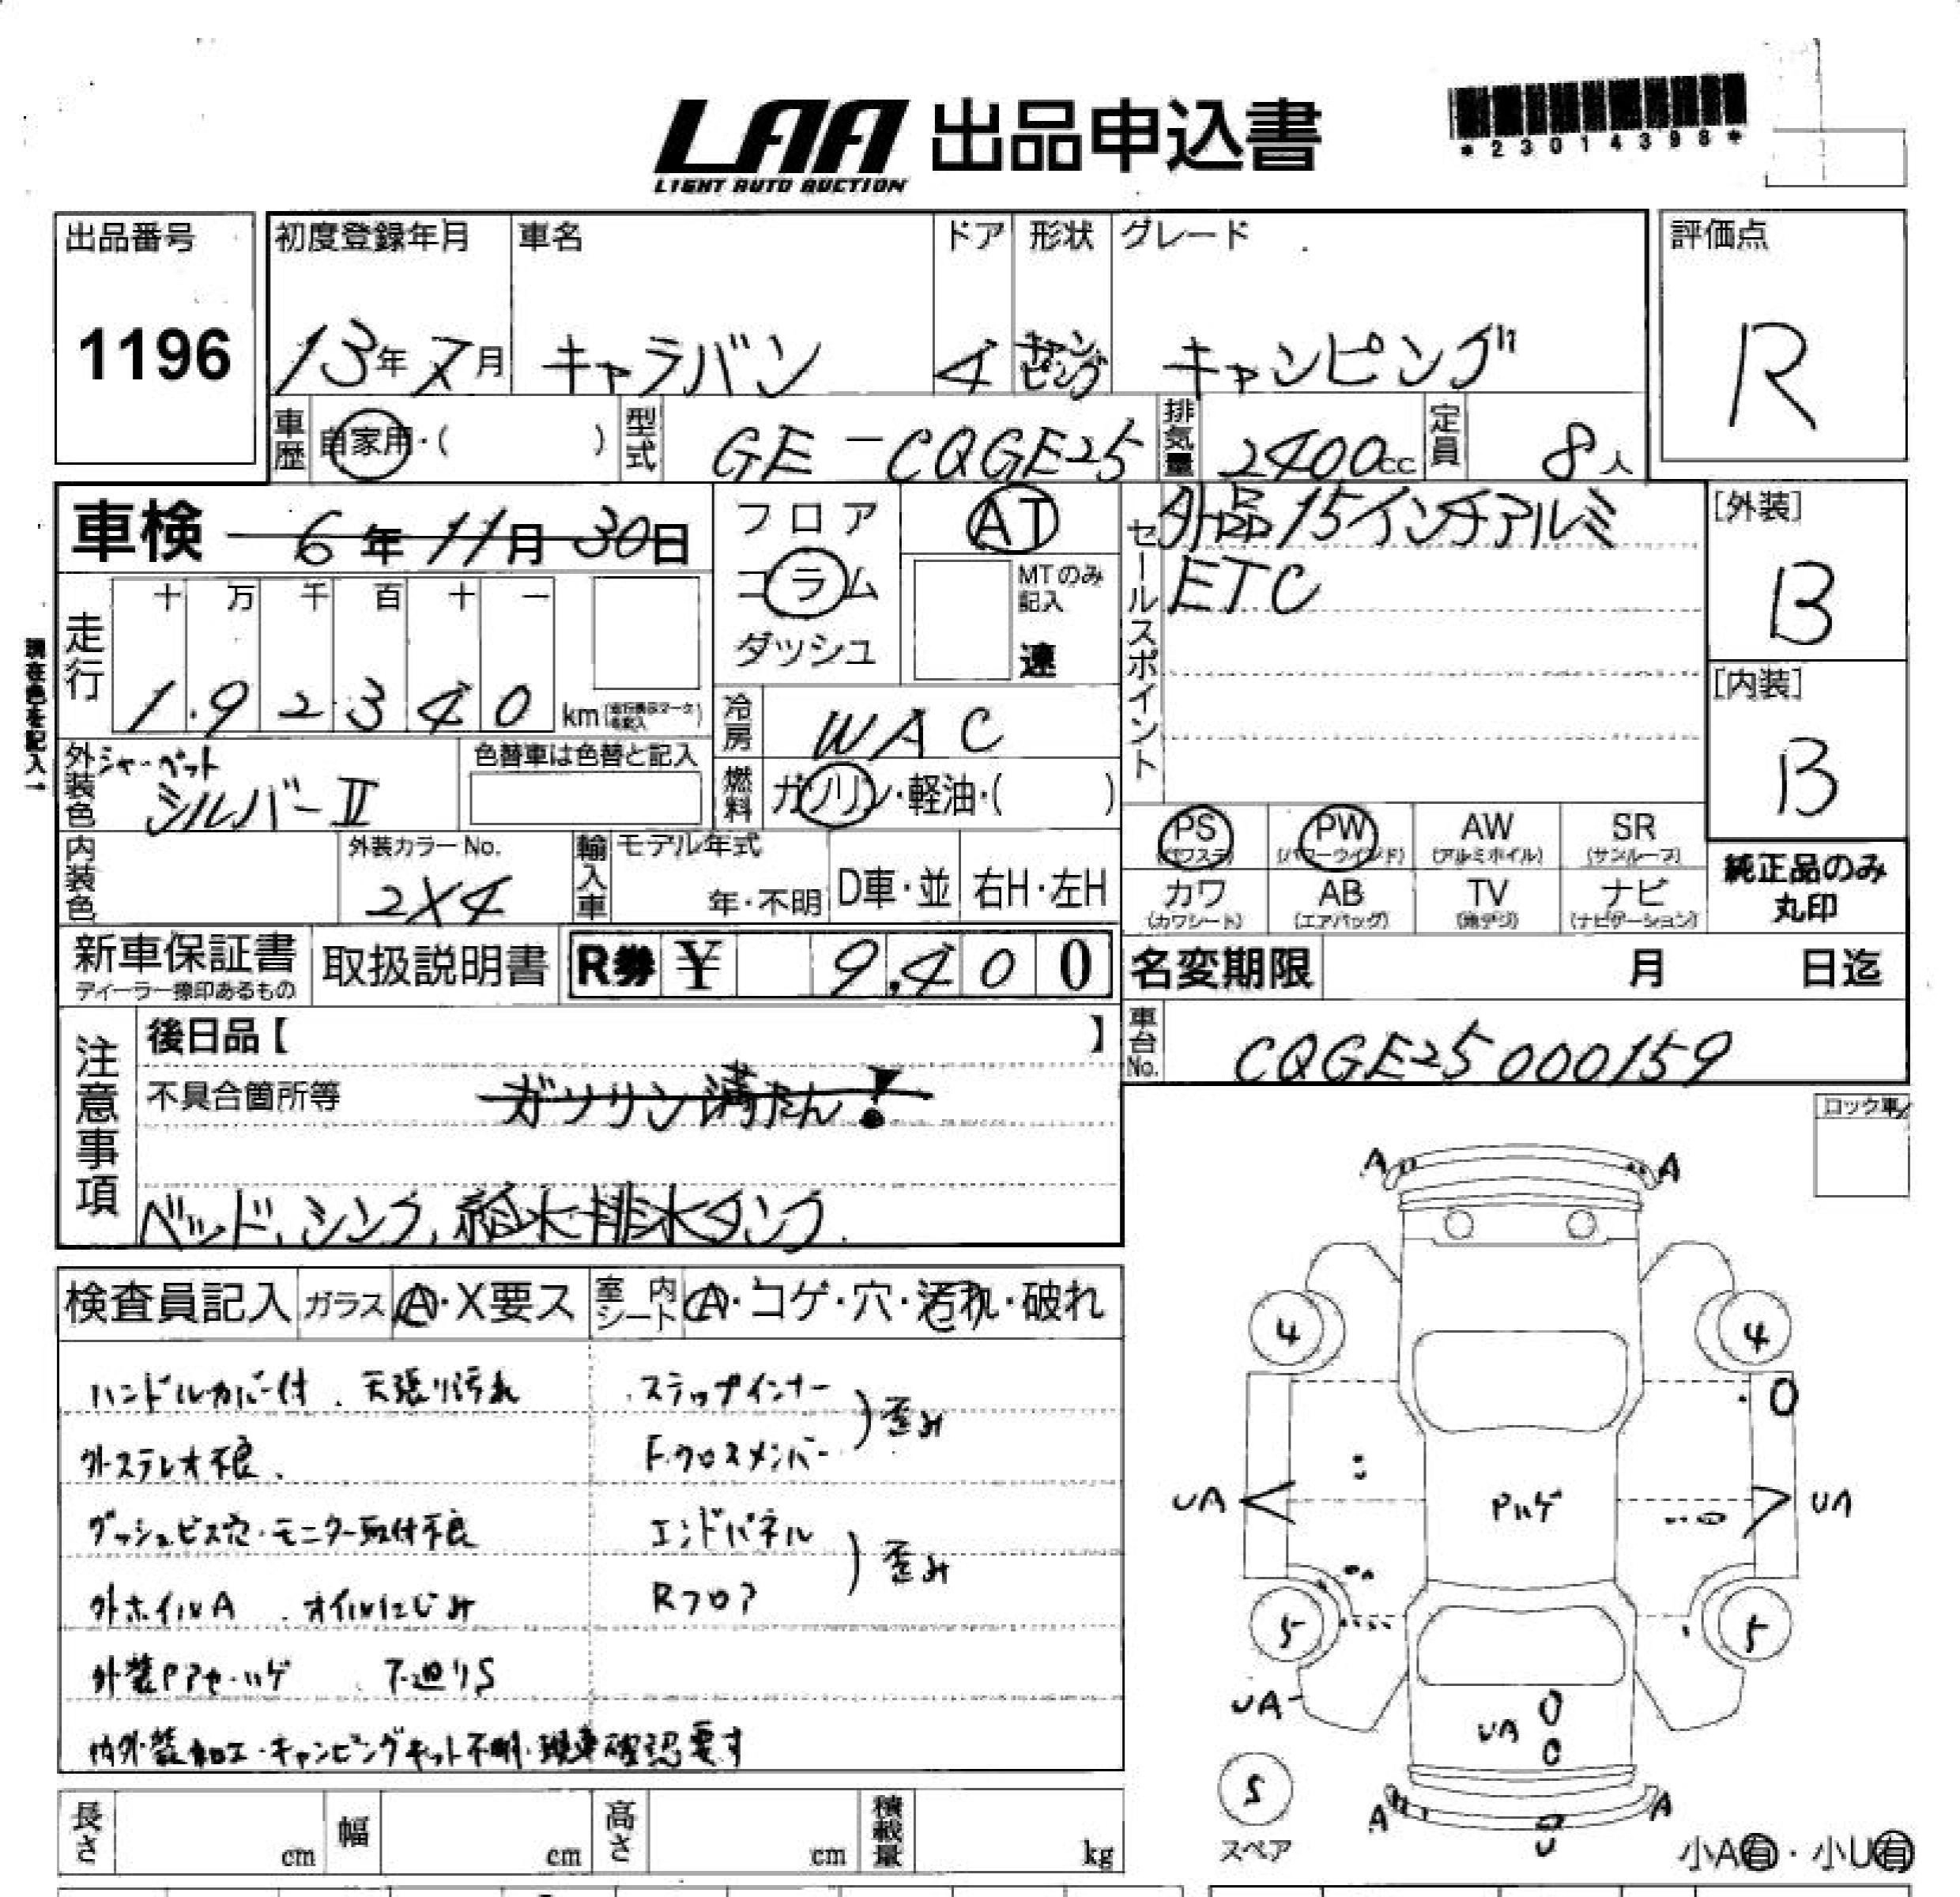 LAA 出品申込書
LIGHT AUTO AUCTION
*23014398*
出品番号
1196
初度登録年月
13年7月
車名
キャラバン
ドア
4
形状
キャンピング
グレード
キャンピング
評価点
R
車歴 自家用・( )
型式 GE-CQGE25
排気量 2400cc
定員 8人
車検 6年11月30日
フロア
コラム
ダッシュ
AT
MTのみ記入
速
セールスポイント
外品15インチアルミ
ETC
[外装]
B
[内装]
B
現在色を記入↑
走行
十 万 千 百 十 一
1.9 2 3 4 0 km
冷房 WAC
外装色 シャーベット
シルバーⅡ
色替車は色替と記入
燃料 ガソリン・軽油・( )
内装色
外装カラーNo.
2X4
輸入車
モデル年式
年・不明
D車・並
右H・左H
PS (パワステ)
PW (パワーウインド)
AW (アルミホイル)
SR (サンルーフ)
カワ (カワシート)
AB (エアバッグ)
TV (地デジ)
ナビ (ナビゲーション)
純正品のみ
丸印
新車保証書
ディーラー捺印あるもの
取扱説明書
R券 ¥ 9,400
名変期限 月 日迄
車台No. CQGE25 000159
注意事項
後日品【 】
不具合箇所等 ガソリン満たん!
ベッド、シンク、給水排水タンク.
ロック車
検査員記入 ガラス A・X要ス 室内シート A・コゲ・穴・汚れ・破れ
ハンドルカバー付 . 天張り汚れ
外ステレオ不良.
ダッシュビス穴・モニター取付不良
外ホイルA . オイルにじみ
外装Pアセ・ハゲ . 下廻りS
内外装加工・キャンピングキット不明・現車確認要す
.ステップインナー
F.クロスメンバー
)歪み
エンドパネル
Rフロア
)歪み
A A
4 4
UA Pハゲ UA
5 5
UA
UA
S
スペア
A A
小A有・小U有
長さ cm
幅 cm
高さ cm
積載量 kg